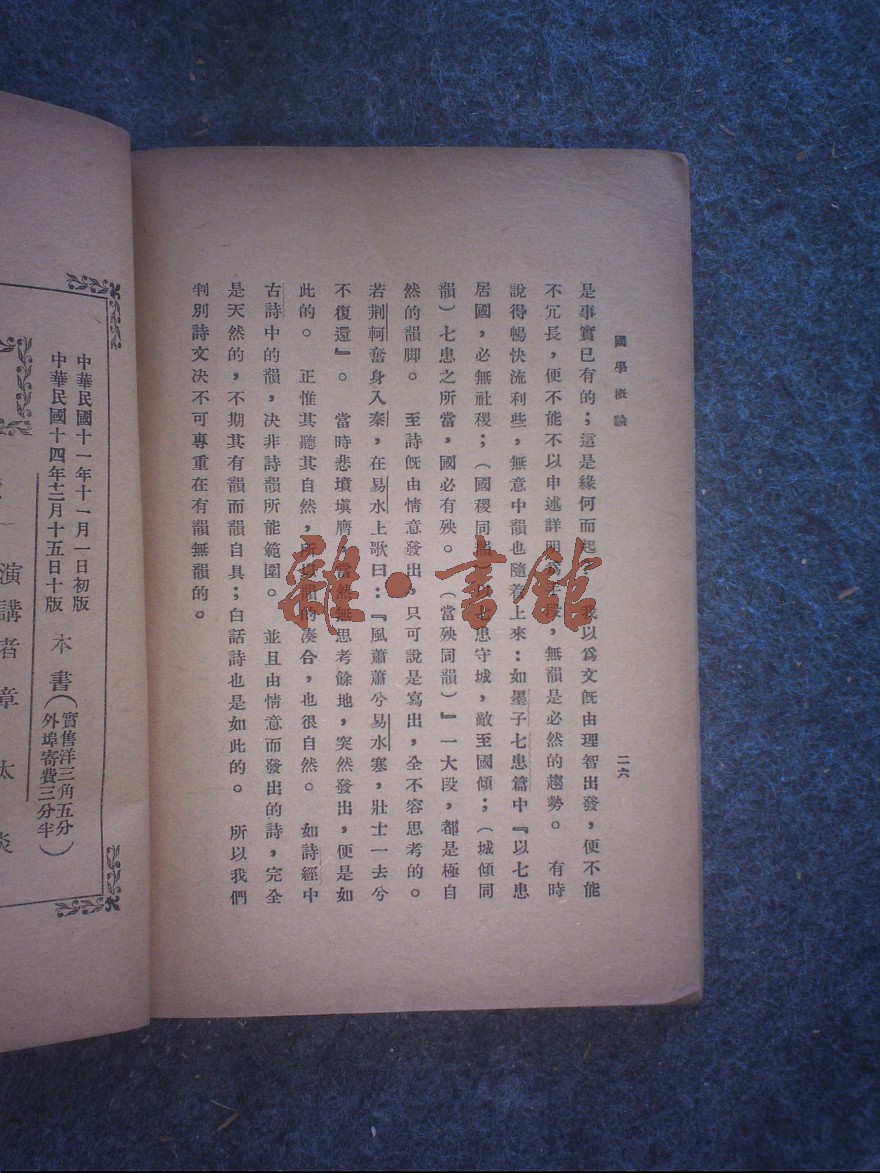 國學概論
二六
是事實已有的；這是緣何而起？我以爲文旣由理智出發，便不能
不冗長，便不能不以申述詳明爲主長，無韻是必然的趨勢。有時
說得暢快流利些，無意中韻也隨着上來：如墨子七患篇中『以七患
居國，必無社稷；（國稷同韻）以七患守城，敵至國傾；（城傾同
韻）七患之所當，國必有殃。（當殃同韻）』一大段，都是極自
然的韻脚。至詩旣由情意發出，只可說是寫出，全不容思考的。
若荆軻奮身入秦，在易水上歌曰：『風蕭蕭兮易水寒，壯士一去兮
不復還』。當時悲墳塡膺，當然無思考餘地，突然發出，便是如
此的。正惟其聽其自然，所以韻的凑合，也很自然。如詩經中
古詩中的韻，決非詩韻所能範圍。並且由情意而發出的詩，完全
是天然的，不期其有韻而韻自具；白話詩也是如此的。所以我們
判別詩文决不可專重在有韻無韻的。
中華民國十一年十一月一日初版
中華民國十四年十二月十五日十版
本書（實售洋三角五分
外埠寄費三分半）
演講者章太炎
雜·書館